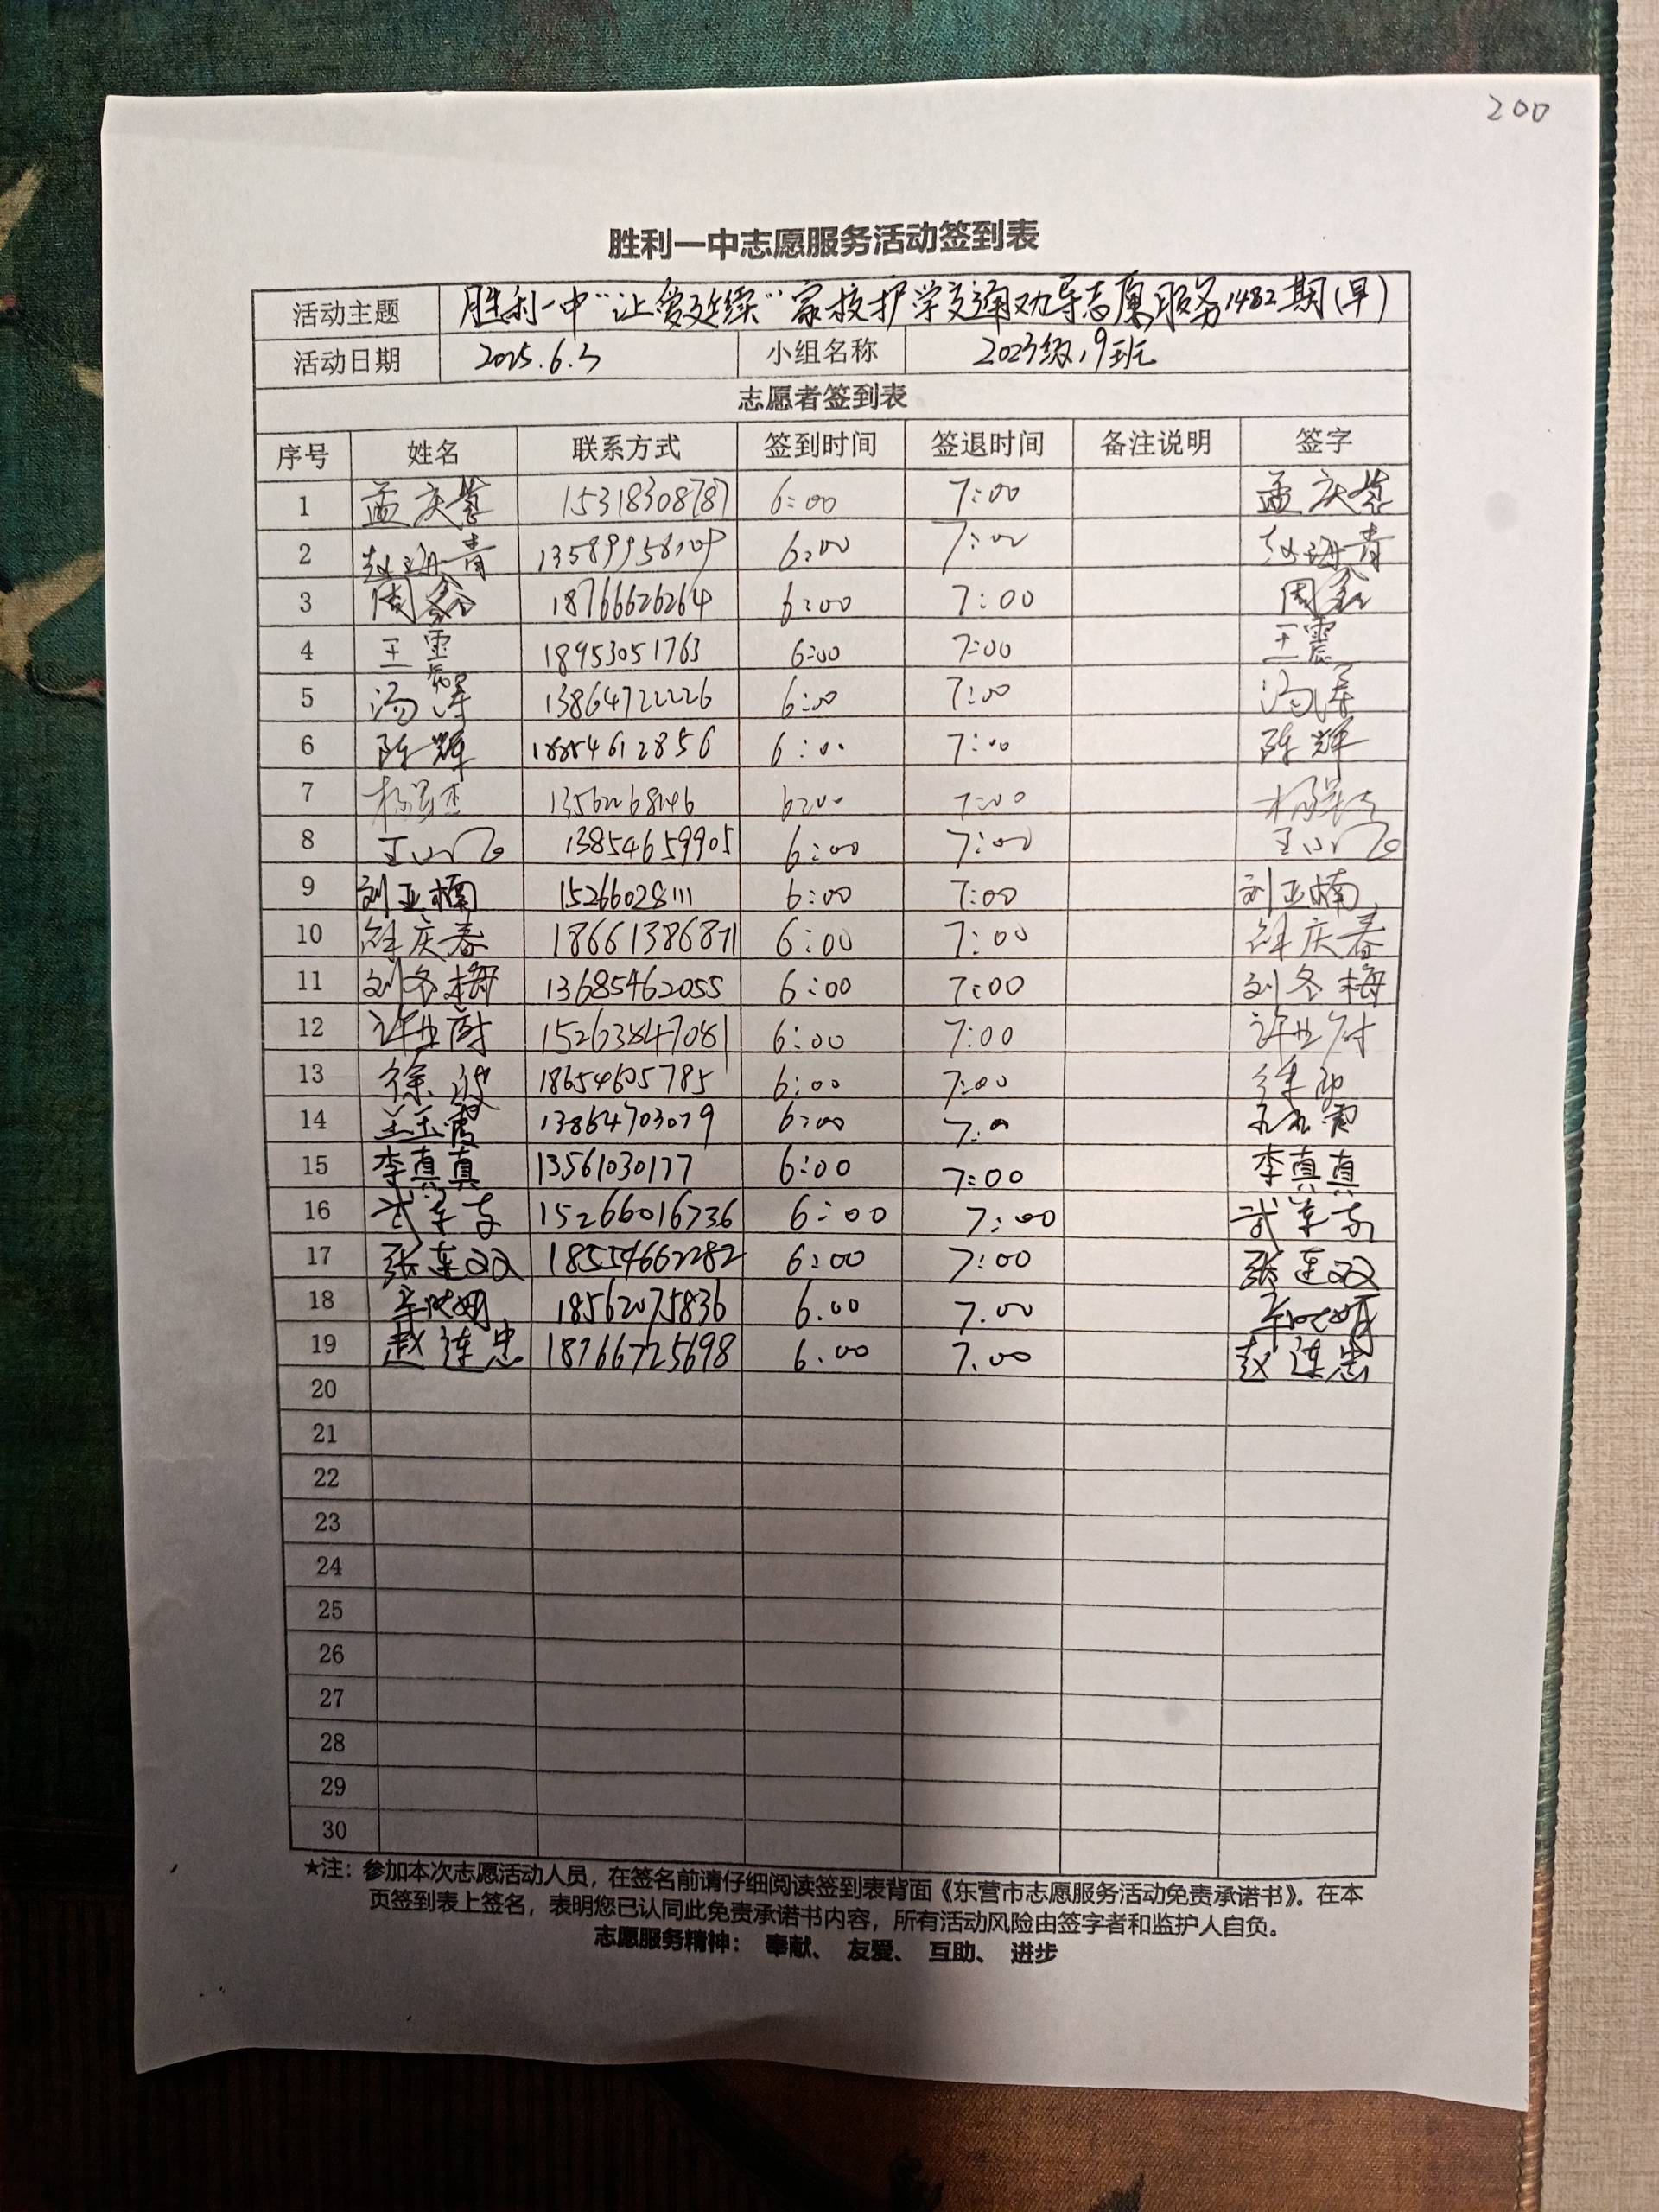 200
胜利一中志愿服务活动签到表
活动主题 胜利一中“让爱延续”家校护学交通劝导志愿服务1482期(早)
活动日期 2025.6.3 小组名称 2023级19班
志愿者签到表
序号 姓名 联系方式 签到时间 签退时间 备注说明 签字
1 孟庆 15318308787 6:00 7:00 孟庆
2 赵海青 6:00 7:00 赵海青
3 周鑫 18766626264 6:00 7:00 周鑫
4 王震 18953051763 6:00 7:00 王震
5 汤涛 13864722226 6:00 7:00 汤涛
6 陈辉 6:00 7:00 陈辉
7 6:00 7:00
8 13854659905 6:00 7:00
9 刘亚楠 15266028111 6:00 7:00 刘亚楠
10 薛庆春 18661386871 6:00 7:00 薛庆春
11 刘冬梅 13685462055 6:00 7:00 刘冬梅
12 15263847081 6:00 7:00
13 徐波 18654605785 6:00 7:00 徐波
14 玉霞 13864703079 6:00 7:00
15 李真真 13561030177 6:00 7:00 李真真
16 武 15266016736 6:00 7:00 武
17 张莲双 18554662282 6:00 7:00 张莲双
18 18562075836 6.00 7.00
19 赵连忠 18766725698 6.00 7.00 赵连忠
20
21
22
23
24
25
26
27
28
29
30
★注：参加本次志愿活动人员，在签名前请仔细阅读签到表背面《东营市志愿服务活动免责承诺书》。在本
页签到表上签名，表明您已认同此免责承诺书内容，所有活动风险由签字者和监护人自负。
志愿服务精神： 奉献、 友爱、 互助、 进步